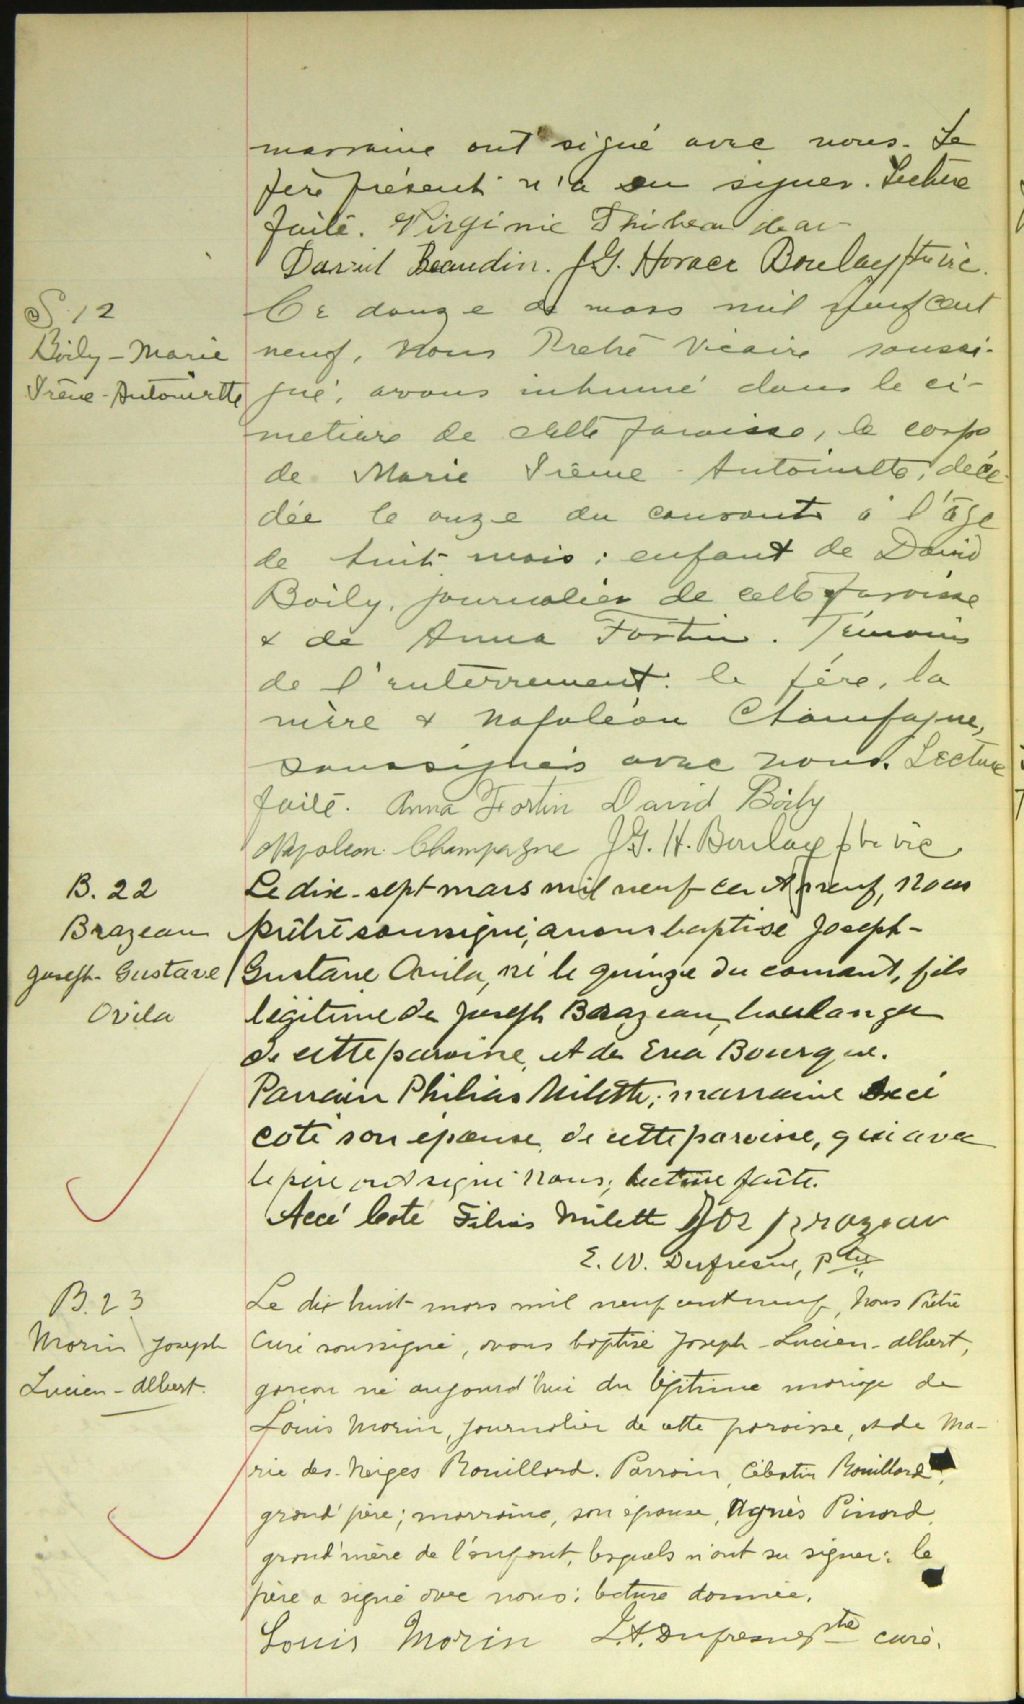 marraine ont signé avec nous. Le
père présent n'a su signer. Lecture
faite. Virginie Thibeaudeau
David Beaudin. J.G. Horace Boulay ptre vic.
S. 12
Boily - Marie
Irène - Antoinette
Ce douze de mars mil neuf cent
neuf, nous Prêtre Vicaire soussi-
gné, avons inhumé dans le ci-
metière de cette paroisse, le corps
de Marie Irène - Antoinette, décé-
dée le onze du courant à l'âge
de huit mois ; enfant de David
Boily, journalier de cette paroisse
& de Anna Fortin. Témoins
de l'enterrement : le père, la
mère & Napoléon Champagne,
soussignés avec nous. Lecture
faite. Anna Fortin David Boily
Napoleon Champagne J.G. H. Boulay ptre vic.
B. 22
Brazeau
Joseph - Gustave
Ovila
Le dix-sept mars mil neuf cent neuf, nous
prêtre soussigné, avons baptisé Joseph-
Gustave Ovila, né le quinze du courant, fils
légitime de Joseph Brazeau, boulanger
de cette paroisse, et de Eva Bourque.
Parrain Philias Milette ; marraine
coté son épouse, de cette paroisse, qui avec
le père ont signé nous ; lecture faite.
Accé Coté Filias Milette Jos Brazeau
E. W. Dufresne, Ptre
B. 23
Morin Joseph
Lucien - Albert.
Le dix huit mars mil neuf cent neuf, Nous Prêtre
Curé soussigné, avons baptisé Joseph - Lucien - Albert,
garçon né aujourd'hui du légitime mariage de
Louis Morin, journalier de cette paroisse, et de Ma-
rie des-Neiges Rouillard. Parrain, Célestin Rouillard,
grand'père ; marraine, son épouse, Agnès Pinard,
grand'mère de l'enfant, lesquels n'ont su signer : le
père a signé avec nous : lecture donnée.
Louis Morin L.A. Dufresne ptre curé.